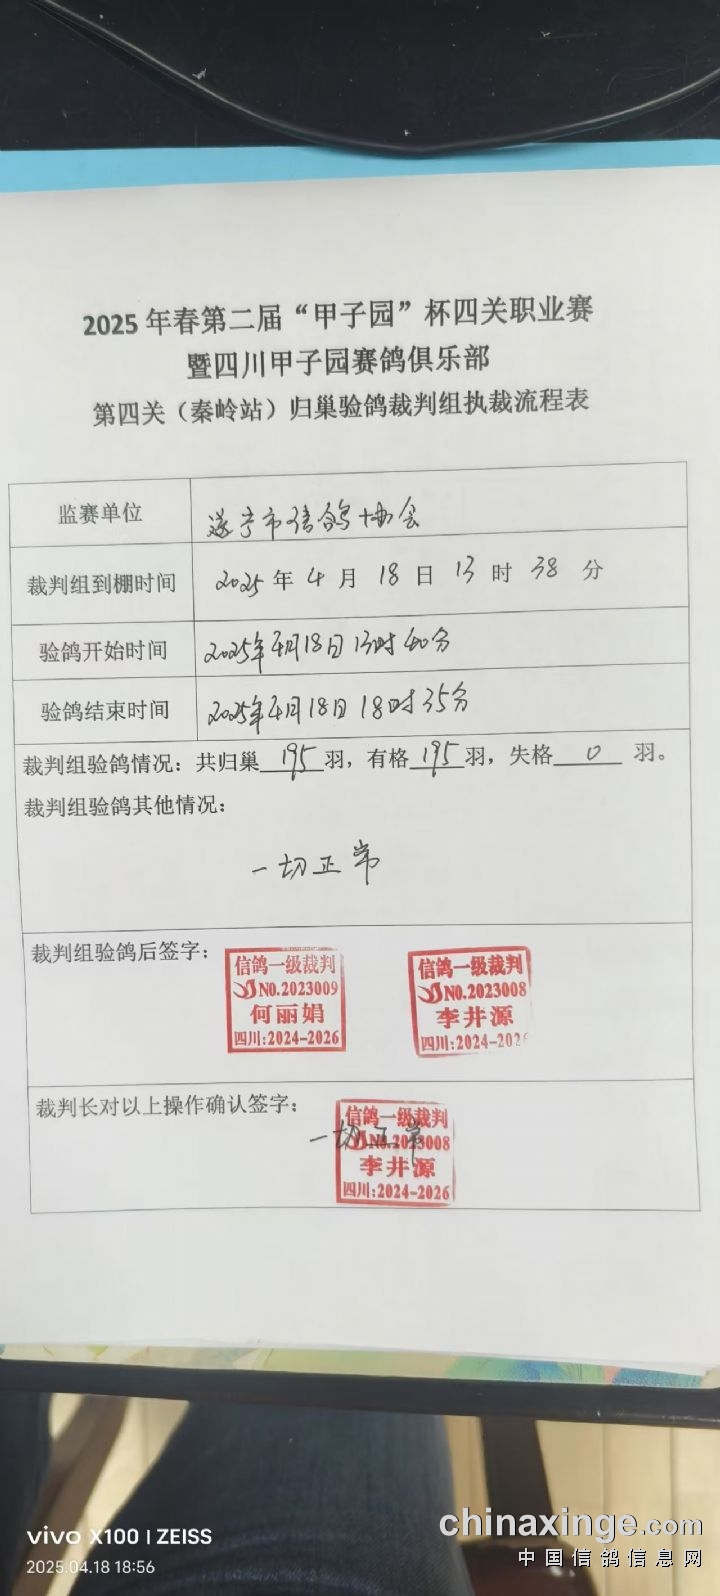 2025年春第二届“甲子园”杯四关职业赛
暨四川甲子园赛鸽俱乐部
第四关（秦岭站）归巢验鸽裁判组执裁流程表
监赛单位 遂宁市信鸽协会
裁判组到棚时间 2025年4月18日13时38分
验鸽开始时间 2025年4月18日13时40分
验鸽结束时间 2025年4月18日18时35分
裁判组验鸽情况：共归巢195羽，有格195羽，失格0羽。
裁判组验鸽其他情况：
一切正常
裁判组验鸽后签字：
信鸽一级裁判
NO.2023009
何丽娟
四川:2024-2026
信鸽一级裁判
NO.2023008
李井源
四川:2024-2026
裁判长对以上操作确认签字：
一切正常
信鸽一级裁判
NO.2023008
李井源
四川:2024-2026
vivo X100 | ZEISS
2025.04.18 18:56
chinaxinge.com
中国信鸽信息网